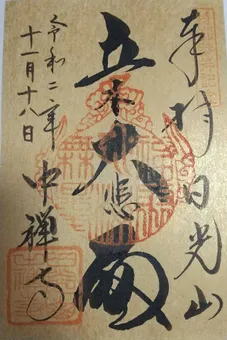 奉拝 日光山
立木大悲殿
中禅寺
令和二年
十一月十八日